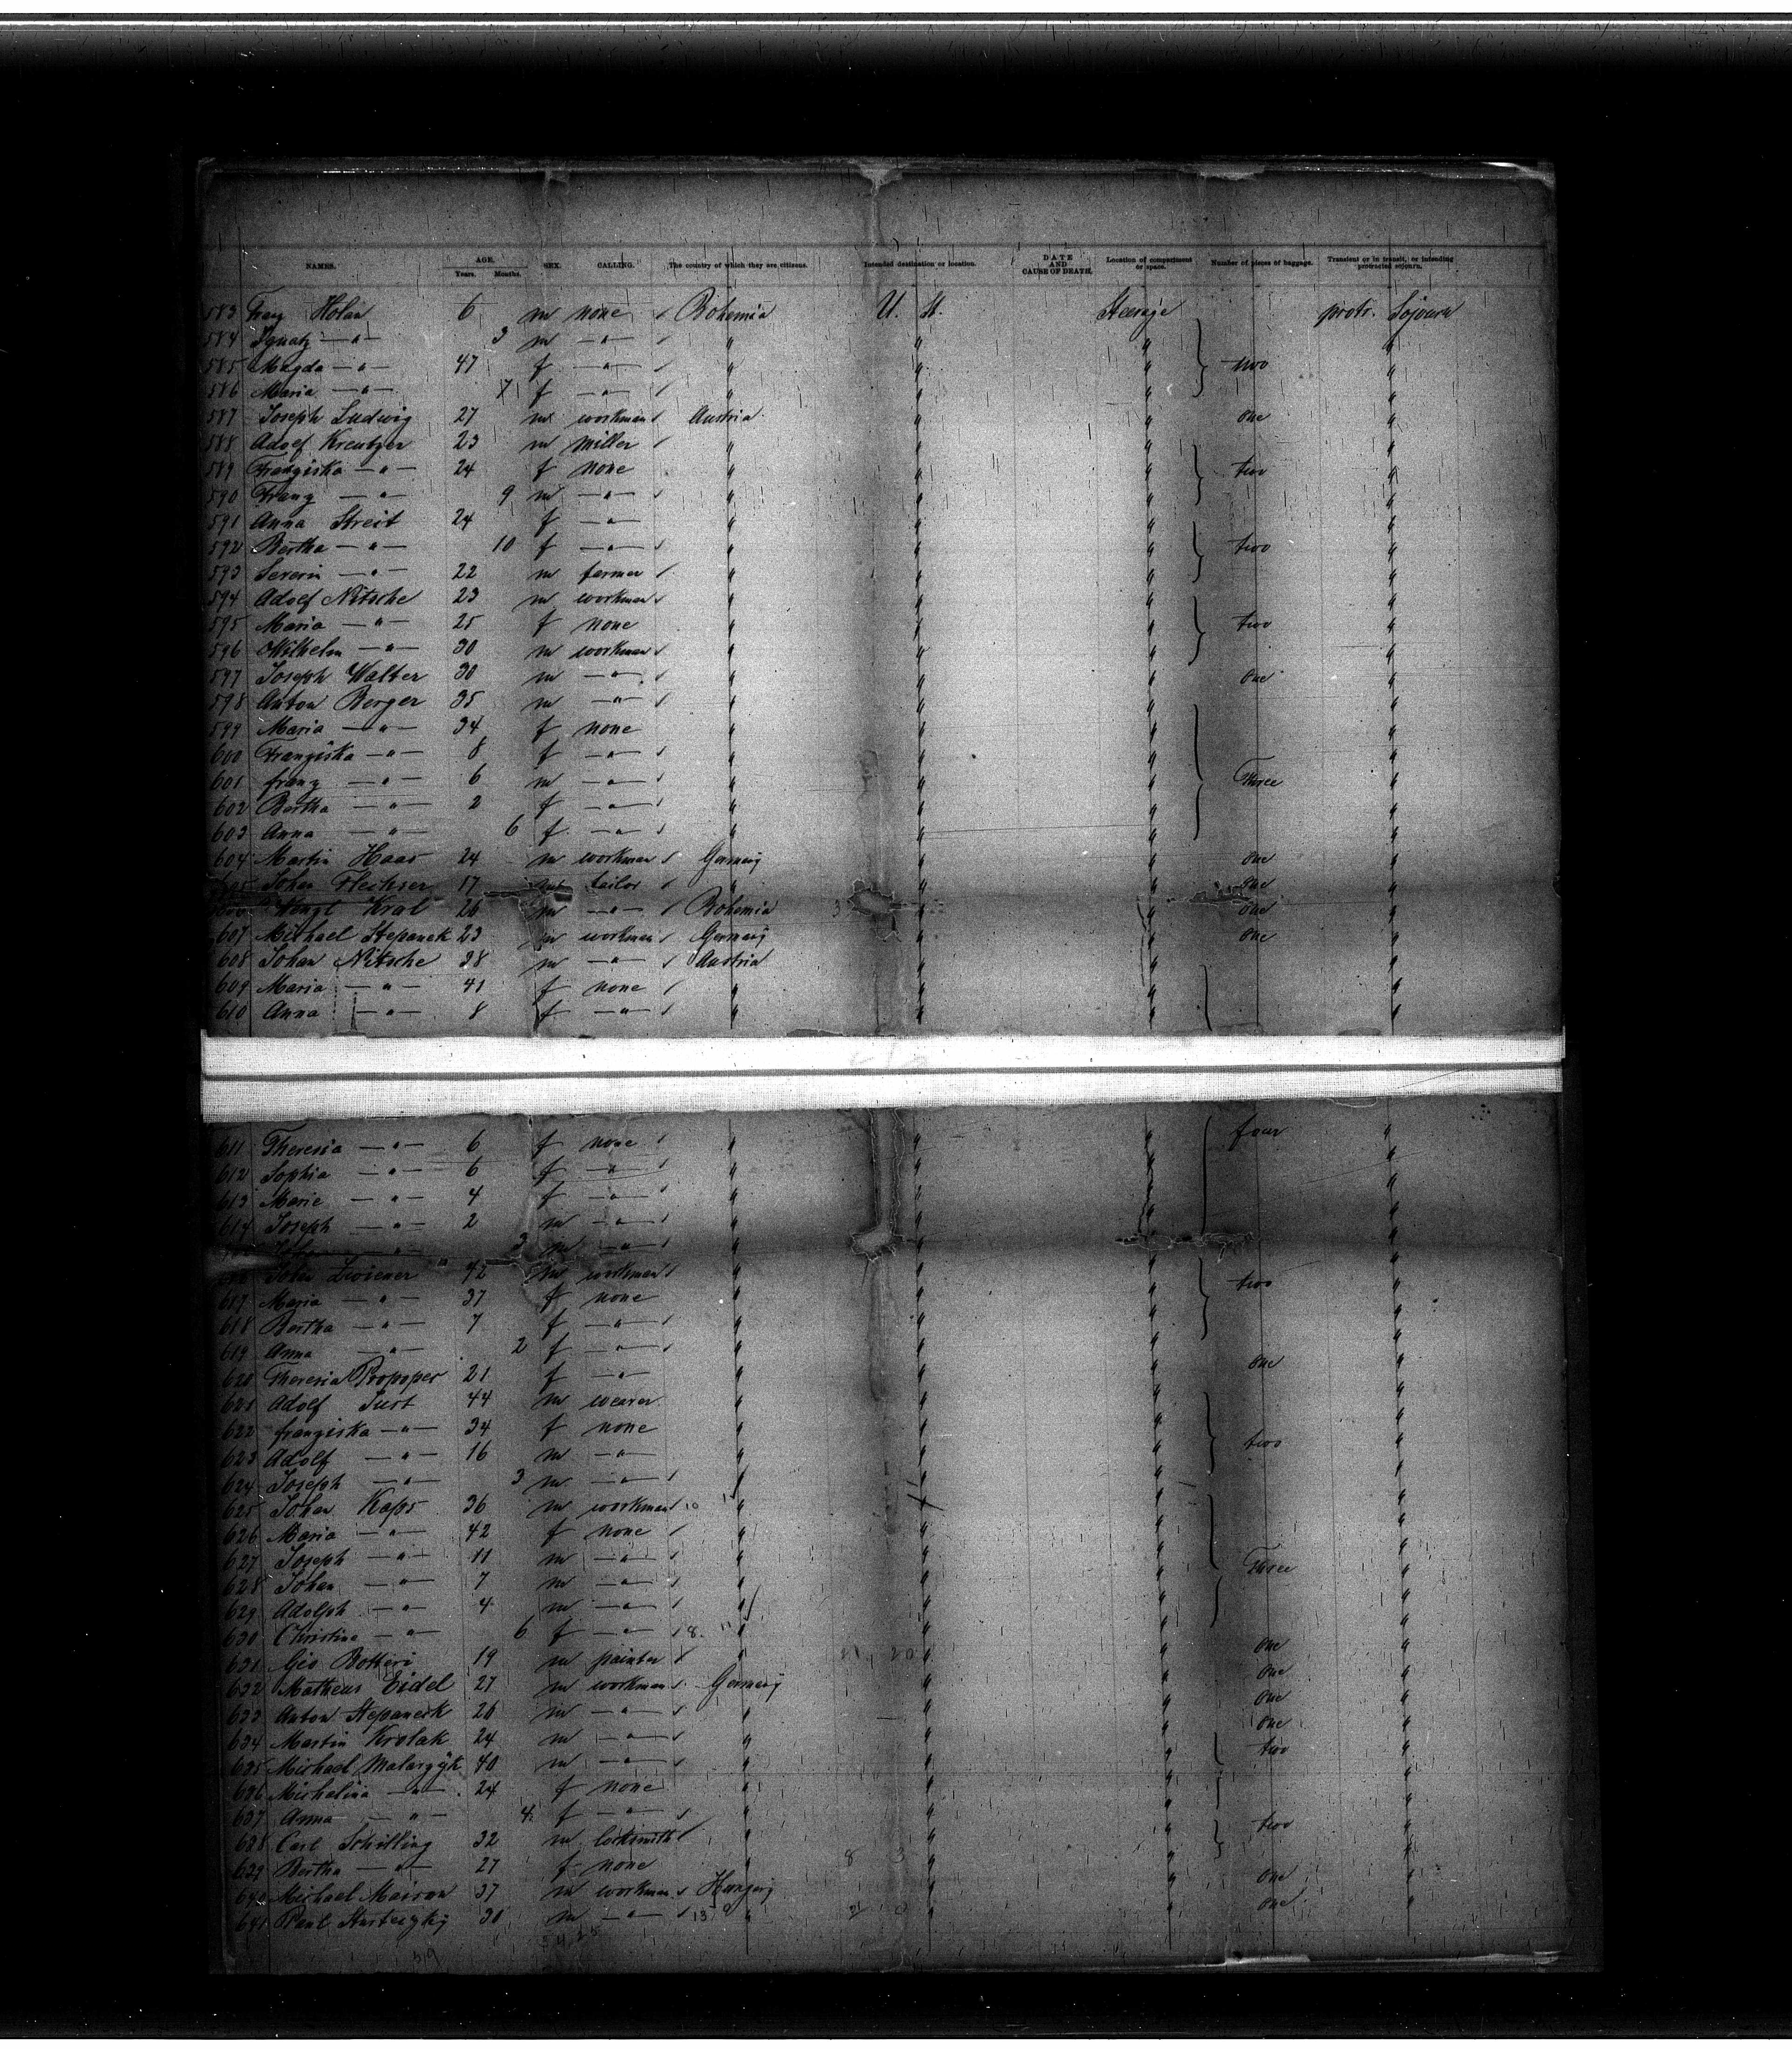 NAMES. AGE. Years. Months. SEX. CALLING. The country of which they are citizens. Intended destination or location. DATE AND CAUSE OF DEATH. Location of compartment or space. Number of pieces of baggage. Transient or in transit, or intending protracted sojourn.
583 Franz Holan 6 m none Bohemia U. St. Steerage protr. Sojourn
584 Ignatz —"— 3 m —"— " " " "
585 Magda —"— 47 f —"— " " " two "
586 Maria —"— 7 f —"— " " " "
587 Joseph Ludwig 27 m workman Austria " " one "
588 Adolf Kreutzer 23 m miller " " " "
589 Franziska —"— 24 f none " " " two "
590 Franz —"— 9 m —"— " " " "
591 Anna Streit 24 f —"— " " " "
592 Bertha —"— 10 f —"— " " " two "
593 Severin —"— 22 m farmer " " " "
594 Adolf Nitsche 23 m workman " " " "
595 Maria —"— 25 f none " " " two "
596 Wilhelm —"— 30 m workman " " " "
597 Joseph Walter 30 m —"— " " " one "
598 Anton Berger 35 m —"— " " " "
599 Maria —"— 34 f none " " " "
600 Franziska —"— 8 f —"— " " " "
601 franz —"— 6 m —"— " " " Three "
602 Bertha —"— 2 f —"— " " " "
603 Anna —"— 6 f —"— " " " "
604 Martin Haas 24 m workman Germany " " one "
605 Johan Flechser 17 m tailor " " " one "
606 Wenzl Kral 26 m —"— Bohemia " " one "
607 Michael Stepanek 23 m workman Germany " " one "
608 Johan Nitsche 38 m —"— Austria " " "
609 Maria —"— 41 f none " " " "
610 Anna —"— 8 f —"— " " " "
611 Theresia —"— 6 f none " " " four "
612 Sophia —"— 6 f —"— " " " "
613 Marie —"— 4 f —"— " " " "
614 Joseph —"— 2 m —"— " " " "
—"— 3 m —"— " " " "
Johan Zwiener 42 m workman " " " "
617 Maria —"— 37 f none " " " two "
618 Bertha —"— 7 f —"— " " " "
619 Anna —"— 2 f —"— " " " "
620 Theresia 21 f —"— " " " one "
621 Adolf Just 44 m weaver " " " "
622 franziska —"— 34 f none " " " "
623 Adolf —"— 16 m —"— " " " two "
624 Joseph —"— 3 m —"— " " " "
625 Johan Kaps 36 m workman 10 " " " "
626 Maria —"— 42 f none " " " "
627 Joseph —"— 11 m —"— " " " Three "
628 Johan —"— 7 m —"— " " " "
629 Adolph —"— 4 m —"— " " " "
630 Christine —"— 6 f —"— 8 " " " "
631 Gio Botteri 19 m painter " 20 " " one "
632 Matheus Eidel 27 m workman Germany " " one "
633 Anton Stepaneck 26 m —"— " " " one "
634 Martin Krolak 24 m —"— " " " one "
635 Michael Malarzyk 40 m —"— " " " two "
636 Michalina —"— 24 f none " " " "
637 Anna —"— 4 f —"— " " " "
638 Carl Schilling 32 m locksmith " " " two "
639 Bertha —"— 27 f none " 8 3 " " "
640 Michael Maison 37 m workman Hungary " " one "
641 Paul 30 m —"— " " " one "